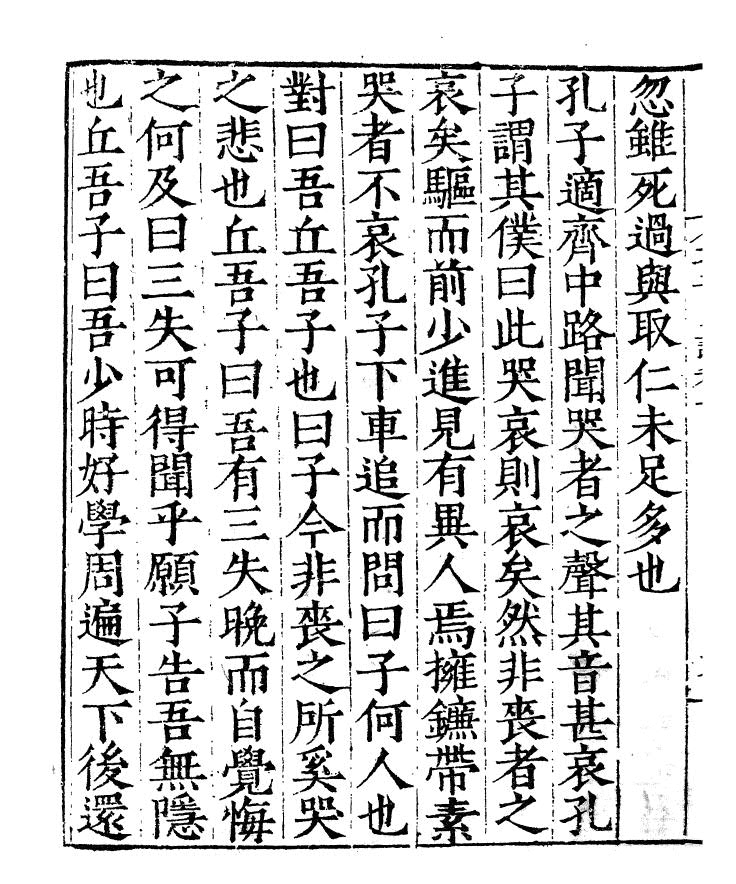 忽雖死過與取仁未足多也
孔子適齊中路聞哭者之聲其音甚哀孔
子謂其僕曰此哭哀則哀矣然非喪者之
哀矣驅而前少進見有異人焉擁鐮帶素
哭者不哀孔子下車追而問曰子何人也
對曰吾丘吾子也曰子今非喪之所奚哭
之悲也丘吾子曰吾有三失晚而自覺悔
之何及曰三失可得聞乎願子告吾無隱
也丘吾子曰吾少時好學周遍天下後還